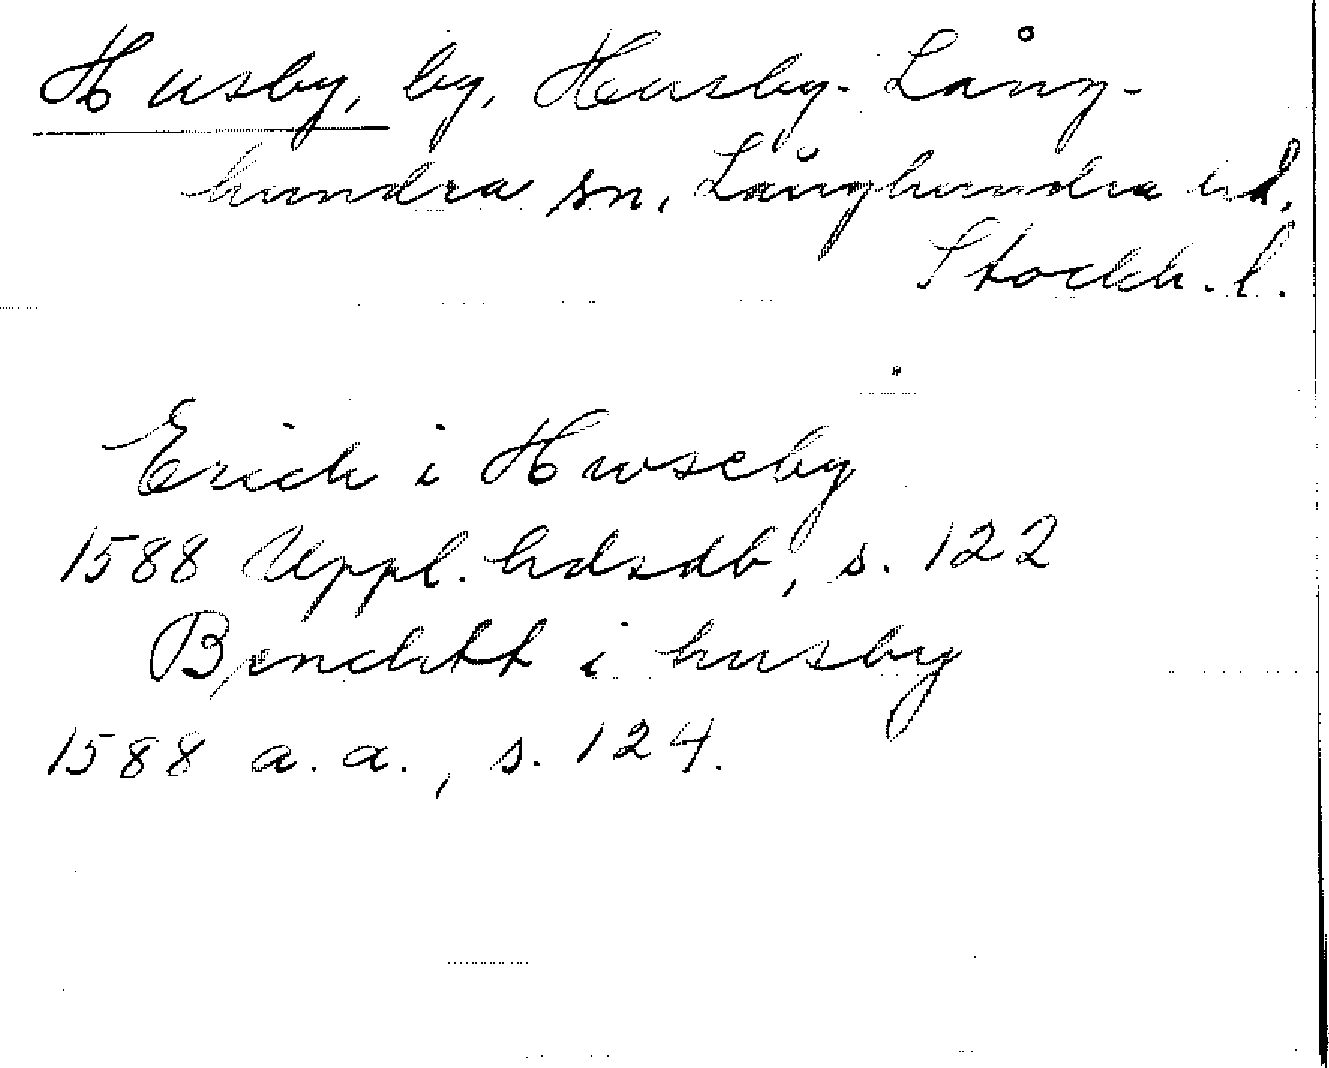 Husby, by, Husby-Lång-
hundra sn, Långhundra hd,
Stockh. l.
Erich i Hwseby
1588 Uppl. hdsdb, s. 122
Bencktt i husby
1588 a. a., s. 124.